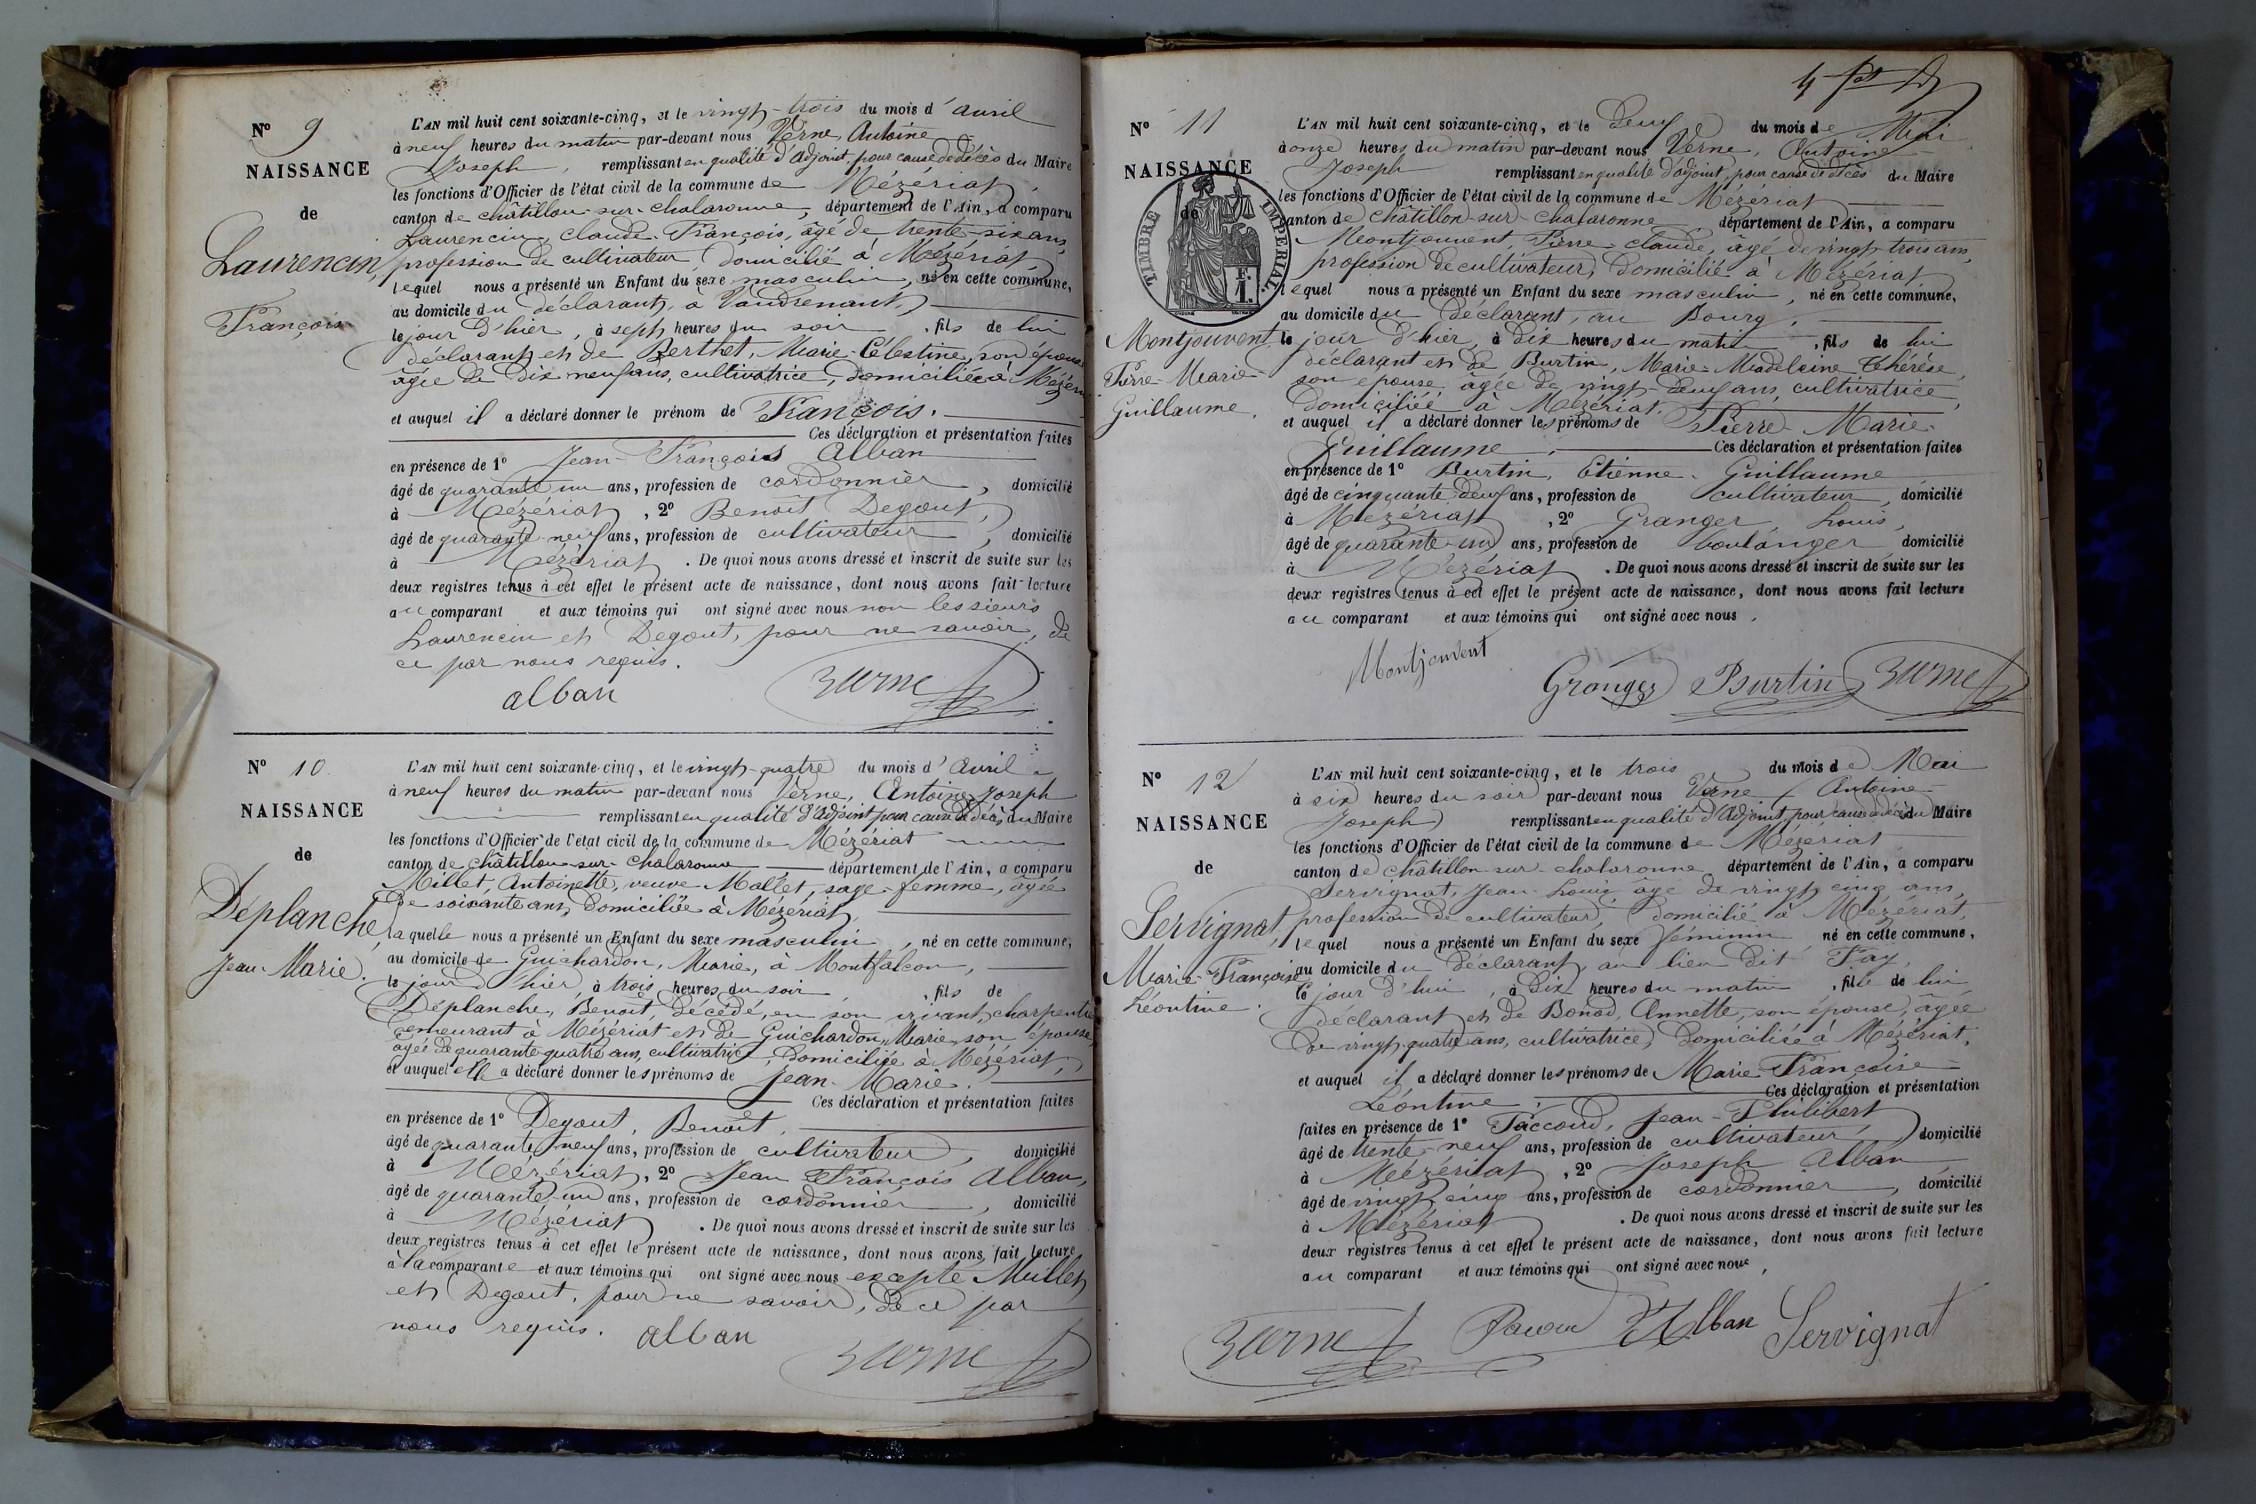 N° 9
NAISSANCE
de
Laurencin,
François
L'AN mil huit cent soixante-cinq, et le vingt-trois du mois d'avril
à neuf heures du matin par-devant nous Verne, Antoine
Joseph, remplissant en qualité d'adjoint, pour cause de décès du Maire
les fonctions d'Officier de l'état civil de la commune de Mézériat,
canton de châtillon-sur-chalaronne, département de l'Ain, a comparu
Laurencin, claude-François, âgé de trente-six ans,
profession de cultivateur domicilié à Mézériat,
lequel nous a présenté un Enfant du sexe masculin, né en cette commune,
au domicile du déclarant, à Vaudrenant,
le jour d'hier, à sept heures du soir, fils de lui
déclarant et de Berthet, Marie-Célestine, son épouse
âgée de dix neuf ans, cultivatrice, domiciliée à
et auquel il a déclaré donner le prénom de François.
Ces déclaration et présentation faites
en présence de 1° Jean-François Alban
âgé de quarante un ans, profession de cordonnier, domicilié
à Mézériat, 2° Benoît Degout,
âgé de quarante-neuf ans, profession de cultivateur, domicilié
à Mézériat. De quoi nous avons dressé et inscrit de suite sur les
deux registres tenus à cet effet le présent acte de naissance, dont nous avons fait lecture
au comparant et aux témoins qui ont signé avec nous non les sieurs
Laurencin et Degout, pour ne savoir, de
ce par nous requis.
alban Verne
N° 10
NAISSANCE
de
Déplanche,
Jean-Marie.
L'AN mil huit cent soixante-cinq, et le vingt-quatre du mois d'avril
à neuf heures du matin par-devant nous Verne, Antoine-Joseph
remplissant en qualité d'adjoint, pour cause de décès, du Maire
les fonctions d'Officier de l'état civil de la commune de Mézériat
canton de châtillon-sur-chalaronne département de l'Ain, a comparu
Millet, Antoinette, veuve Mallet, sage-femme, âgée
de soixante ans, domiciliée à Mézériat,
laquelle nous a présenté un Enfant du sexe masculin, né en cette commune,
au domicile de Guichardon, Marie, à Montfalcon,
le jour d'hier, à trois heures du soir, fils de
Déplanche, Benoît, décédé, en son vivant, charpentier
demeurant à Mézériat et de Guichardon, Marie, son épouse
âgée de quarante quatre ans, cultivatrice, domiciliée à Mézériat,
et auquel elle a déclaré donner les prénoms de Jean-Marie.
Ces déclaration et présentation faites
en présence de 1° Degout, Benoît,
âgé de quarante neuf ans, profession de cultivateur, domicilié
à Mézériat, 2° Jean François Alban,
âgé de quarante-un ans, profession de cordonnier, domicilié
à Mézériat. De quoi nous avons dressé et inscrit de suite sur les
deux registres tenus à cet effet le présent acte de naissance, dont nous avons fait lecture
à la comparante et aux témoins qui ont signé avec nous excepté Millet
et Degout, pour ne savoir, de ce par
nous requis. alban Verne
N° 11
NAISSANCE
de
TIMBRE IMPERIAL
F.
1.
Montjouvent
Pierre-Marie
Guillaume.
L'AN mil huit cent soixante-cinq, et le deux du mois de Mai
à onze heures du matin par-devant nous Verne, Antoine
Joseph remplissant en qualité d'adjoint, pour cause de décès du Maire
les fonctions d'Officier de l'état civil de la commune de Mézériat
canton de châtillon-sur-chalaronne département de l'Ain, a comparu
Montjouvent, Pierre-claude, âgé de vingt trois ans,
profession de cultivateur, domicilié à Mézériat,
lequel nous a présenté un Enfant du sexe masculin, né en cette commune,
au domicile du déclarant, au Bourg,
le jour d'hier, à dix heures du matin, fils de lui
déclarant et de Burtin, Marie-Madeleine Thérèse,
son épouse âgée de vingt deux ans, cultivatrice,
domiciliée à Mézériat.
et auquel il a déclaré donner les prénoms de Pierre-Marie-
Guillaume. Ces déclaration et présentation faites
en présence de 1° Burtin, Etienne-Guillaume
âgé de cinquante deux ans, profession de cultivateur, domicilié
à Mézériat, 2° Granger, Louis,
âgé de quarante-un ans, profession de boulanger domicilié
à Mézériat. De quoi nous avons dressé et inscrit de suite sur les
deux registres tenus à cet effet le présent acte de naissance, dont nous avons fait lecture
au comparant et aux témoins qui ont signé avec nous,
Montjouvent Granger Burtin Verne
N° 12
NAISSANCE
de
Servignat,
Marie-Françoise
Léontine.
L'AN mil huit cent soixante-cinq, et le trois du mois de Mai
à six heures du soir par-devant nous Verne, Antoine
Joseph remplissant en qualité d'adjoint, pour cause de décès du Maire
les fonctions d'Officier de l'état civil de la commune de Mézériat
canton de châtillon-sur-chalaronne département de l'Ain, a comparu
Servignat, Jean-Louis, âgé de vingt cinq ans,
profession de cultivateur, domicilié à Mézériat,
lequel nous a présenté un Enfant du sexe féminin né en cette commune,
au domicile du déclarant, au lieu dit Fay,
le jour d'hui, à dix heures du matin, fille de lui
déclarant et de Bonod, Annette, son épouse, âgée
de vingt-quatre ans, cultivatrice, domiciliée à Mézériat,
et auquel il a déclaré donner les prénoms de Marie Françoise
Léontine, Ces déclaration et présentation
faites en présence de 1° Paccoud, Jean-Philibert
âgé de trente-neuf ans, profession de cultivateur, domicilié
à Mézériat, 2° Joseph Alban
âgé de vingt cinq ans, profession de cordonnier, domicilié
à Mézériat. De quoi nous avons dressé et inscrit de suite sur les
deux registres tenus à cet effet le présent acte de naissance, dont nous avons fait lecture
au comparant et aux témoins qui ont signé avec nous,
Verne Alban Servignat